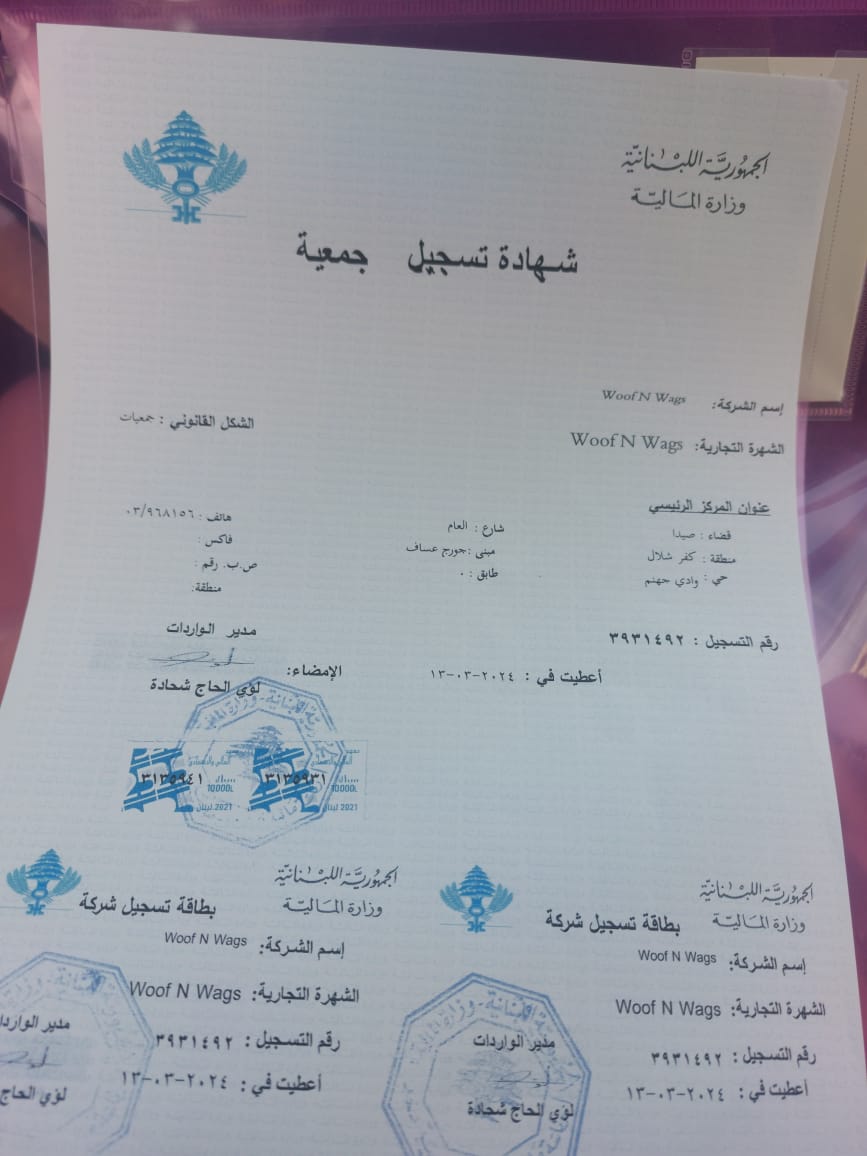 الجمهورية اللبنانية
وزارة المالية
شهادة تسجيل جمعية
إسم الشركة: Woof N Wags
الشكل القانوني : جمعيات
الشهرة التجارية: Woof N Wags
عنوان المركز الرئيسي
قضاء : صيدا
شارع : العام
هاتف : ٠٣/٩٦٨١٥٦
منطقة : كفر شلال
مبنى :جورج عساف
فاكس :
حي : وادي جهنم
طابق : ٠
ص.ب. رقم :
منطقة:
رقم التسجيل : ٣٩٣١٤٩٢
مدير الواردات
أعطيت في : ٢٠٢٤-٠٣-١٣
الإمضاء:
لؤي الحاج شحادة
٣١٣٥٩٤١
٣١٣٥٩٣١
10000L
10000L
2021 لبنان
2021 لبنان
الجمهورية اللبنانية
وزارة المالية
بطاقة تسجيل شركة
إسم الشركة: Woof N Wags
الشهرة التجارية: Woof N Wags
رقم التسجيل : ٣٩٣١٤٩٢
أعطيت في : ٢٠٢٤-٠٣-١٣
مدير الواردات
لؤي الحاج شحادة
الجمهورية اللبنانية
وزارة المالية
بطاقة تسجيل شركة
إسم الشركة: Woof N Wags
الشهرة التجارية: Woof N Wags
رقم التسجيل : ٣٩٣١٤٩٢
أعطيت في : ٢٠٢٤-٠٣-١٣
مدير
لؤي الحاج